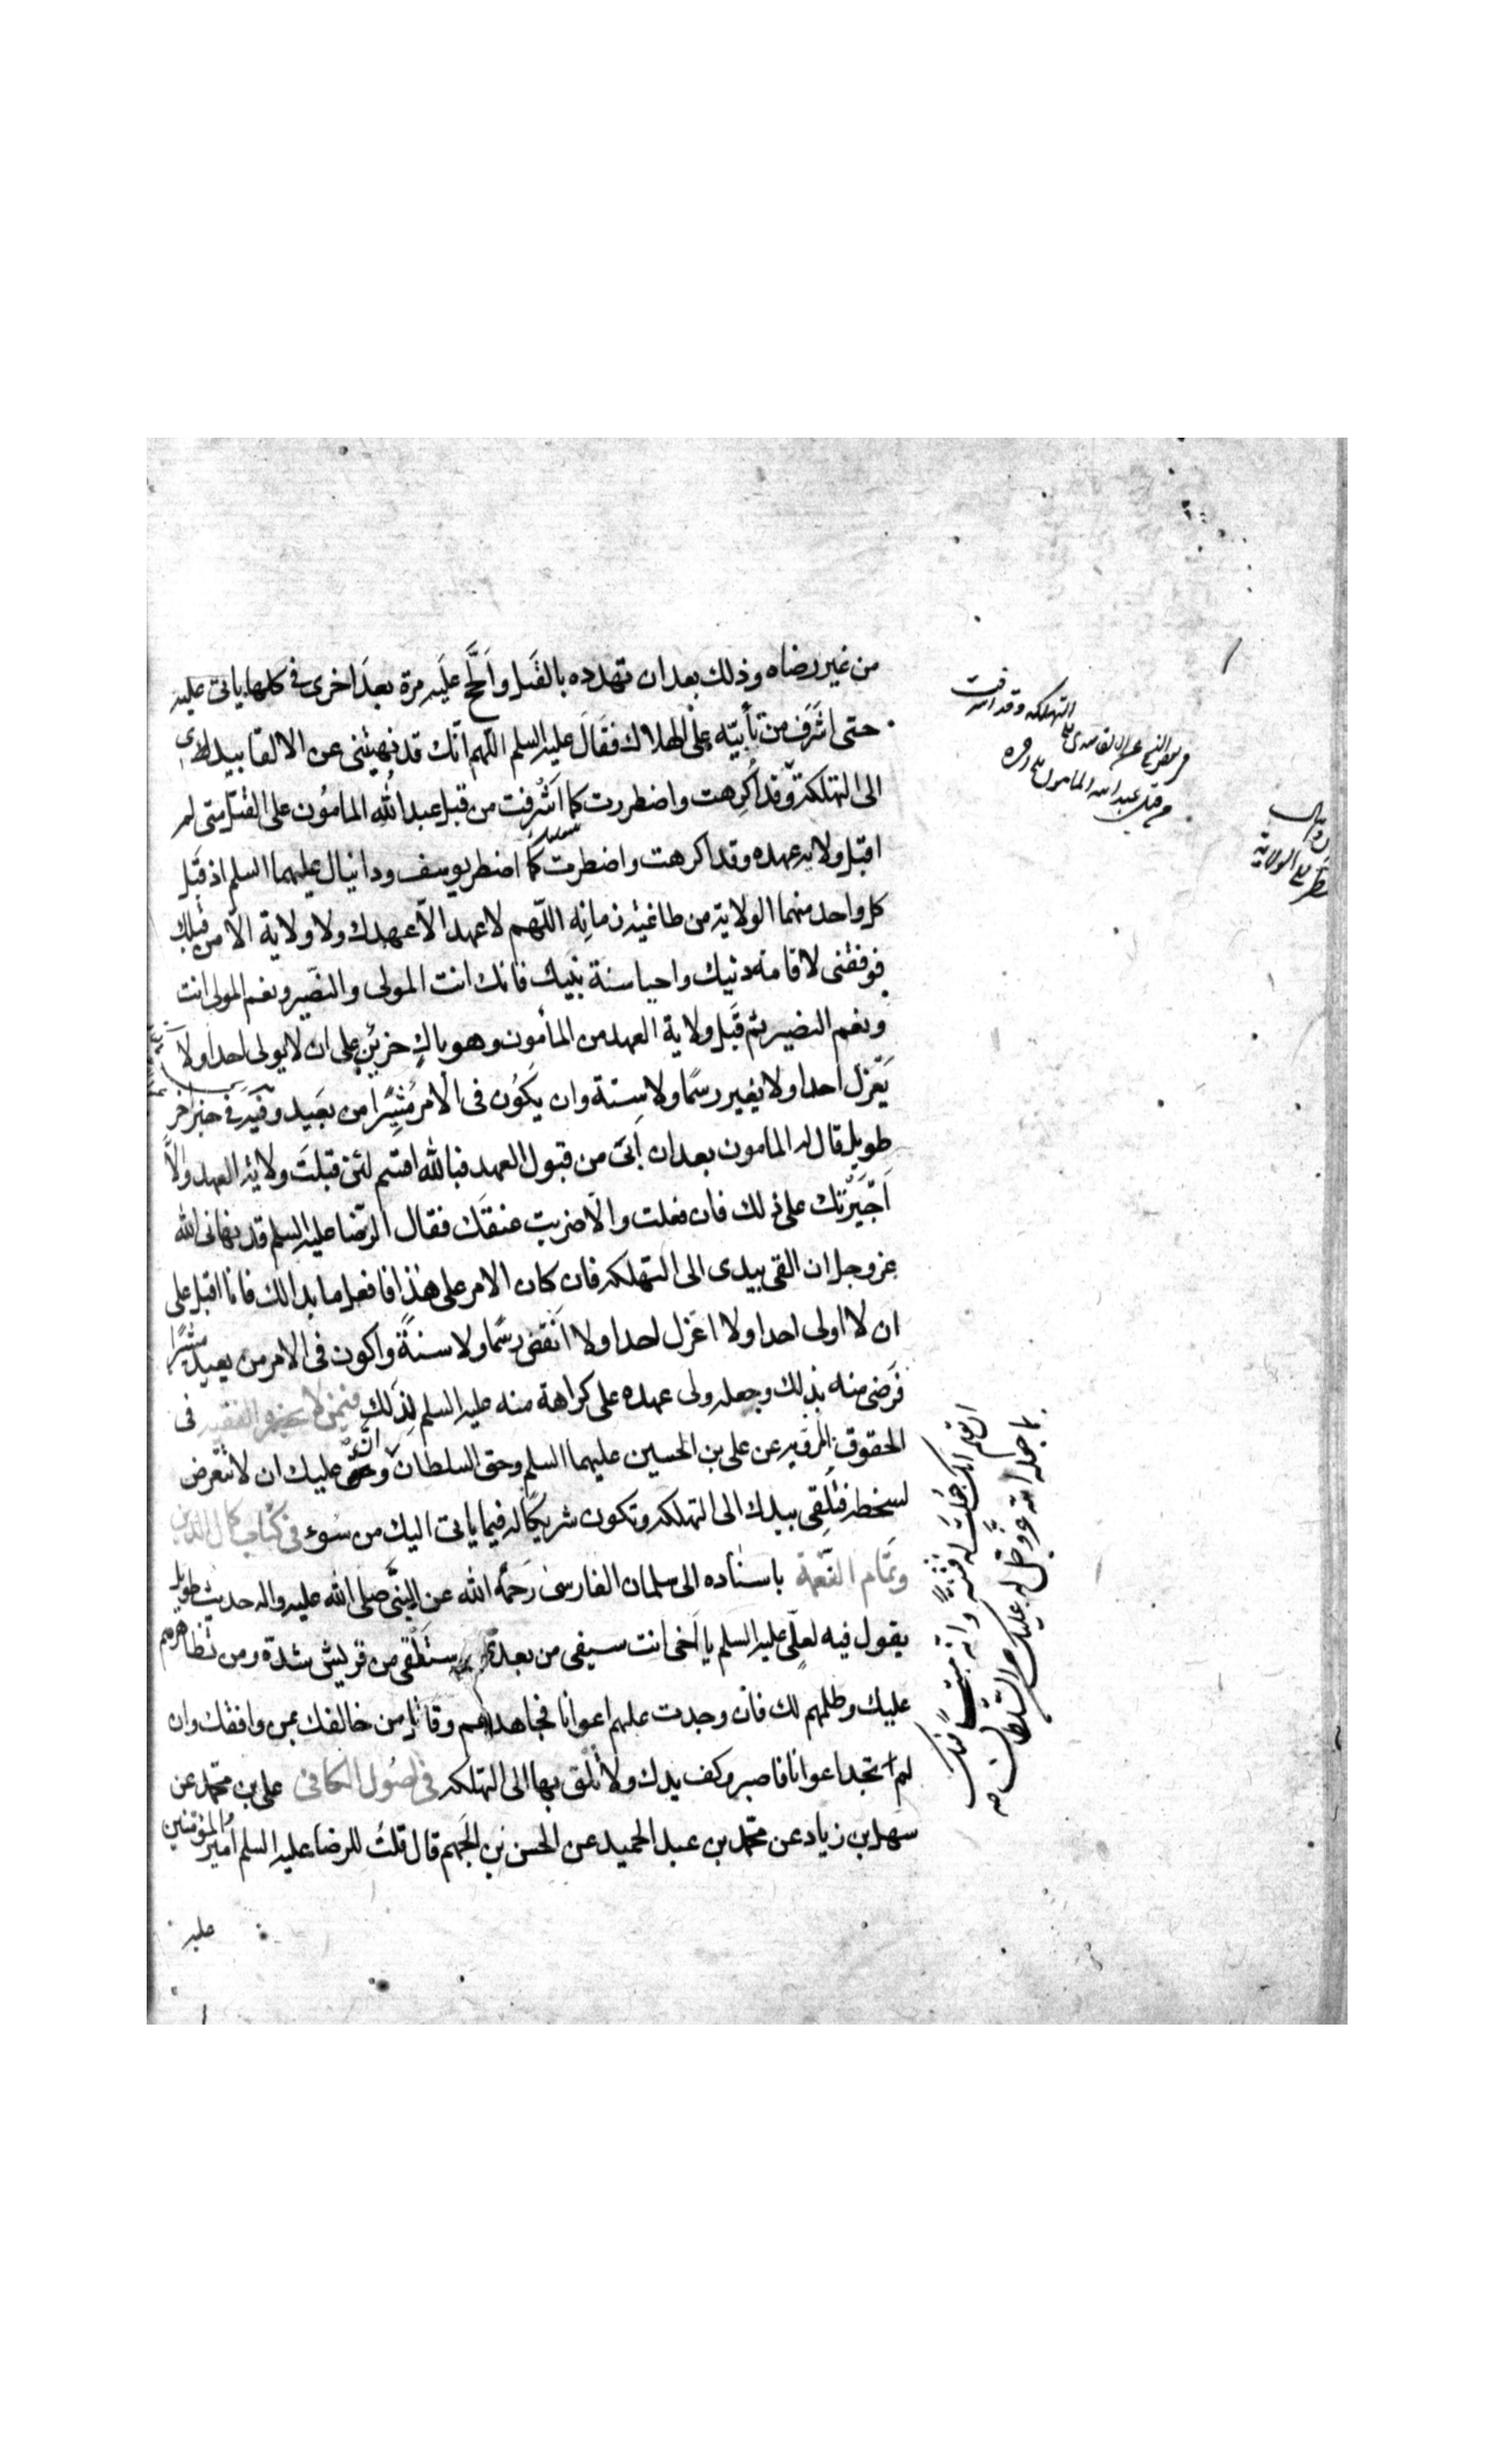 من غير رضاه وذلك بعد ان تهدده بالقتل والح عليه مرة بعد اخرى في كلها يابى عليه
حتى اشرف من تأبيه على الهلاك فقال عليه السلم اللهم انك قد نهيتنى عن الالقا بيدى
الى التهلكة وقد اكرهت واضطررت كما اشرفت من قبل عبد الله المامون على القتل متى لم
اقبل ولايه عهده وقد اكرهت واضطررت كما اضطر يوسف ودانيال عليهما السلم اذ قبل
كل واحد منهما الولاية من طاغيه زمانه اللهم لا عهد الا عهدك ولا ولاية الا من قبلك
فوفقنى لاقامة دينك واحيا سنة نبيك فانك انت المولى والنصير ونعم المولى انت
ونعم النصير ثم قبل ولاية العهد من المأمون وهو باك حزين على ان لا يولى احدا ولا
يعزل احدا ولا يغير رسما ولا سنة وان يكون فى الامر مشيرا من بعيد وفيه في خبر اخر
طويل قال له المامون بعد ان ابى من قبول العهد فبالله اقسم لئن قبلت ولاية العهد والا
اجبرتك على ذلك فان فعلت والا ضربت عنقك فقال الرضا عليه السلم قد نهانى الله
عز وجل ان القى بيدى الى التهلكه فان كان الامر على هذا فافعل ما بدا لك فانا اقبل على
ان لا اولى احدا ولا اعزل احدا ولا انقض رسما ولا سنة واكون فى الامر من بعيد مشيرا
فرضى منه بذلك وجعله ولى عهده على كراهة منه عليه السلم لذلك فيمن لا يحضره الفقيه فى
الحقوق المرويه عن على بن الحسين عليهما السلم وحق السلطان وان عليك ان لا تتعرض
لسخطه فتلقى بيدك الى التهلكه وتكون شريكا له فيما ياتى اليك من سوء فى كتاب كمال الدين
وتمام النعمة باسناده الى سلمان الفارسى رحمه الله عن النبى صلى الله عليه واله حديث طويل
يقول فيه لعلى عليه السلم يا اخى انت سيفى من بعدى ستلقى من قريش شدة ومن تظاهرهم
عليك وظلمهم لك فان وجدت عليهم اعوانا فجاهدهم وقاتل من خالفك بمن وافقك وان
لم تجد اعوانا فاصبر وكف يدك ولا تلق بها الى التهلكه فى اصول الكافى على بن محمد عن
سهل بن زياد عن محمد بن عبد الحميد عن الحسن بن الجهم قال قلت للرضا عليه السلم امير المؤمنين
عليه
التهلكه وقد اشرفت
من قبل عبد الله المامون
الولاية
ان تعلم انك جعلت له فتنة وانه مبتلى فيك
بما جعله الله عز وجل له عليك من السلطان صح